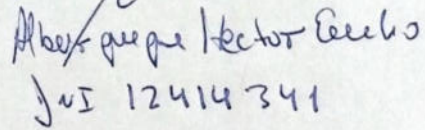 Alburquerque Hector Emilio
DNI 12414341